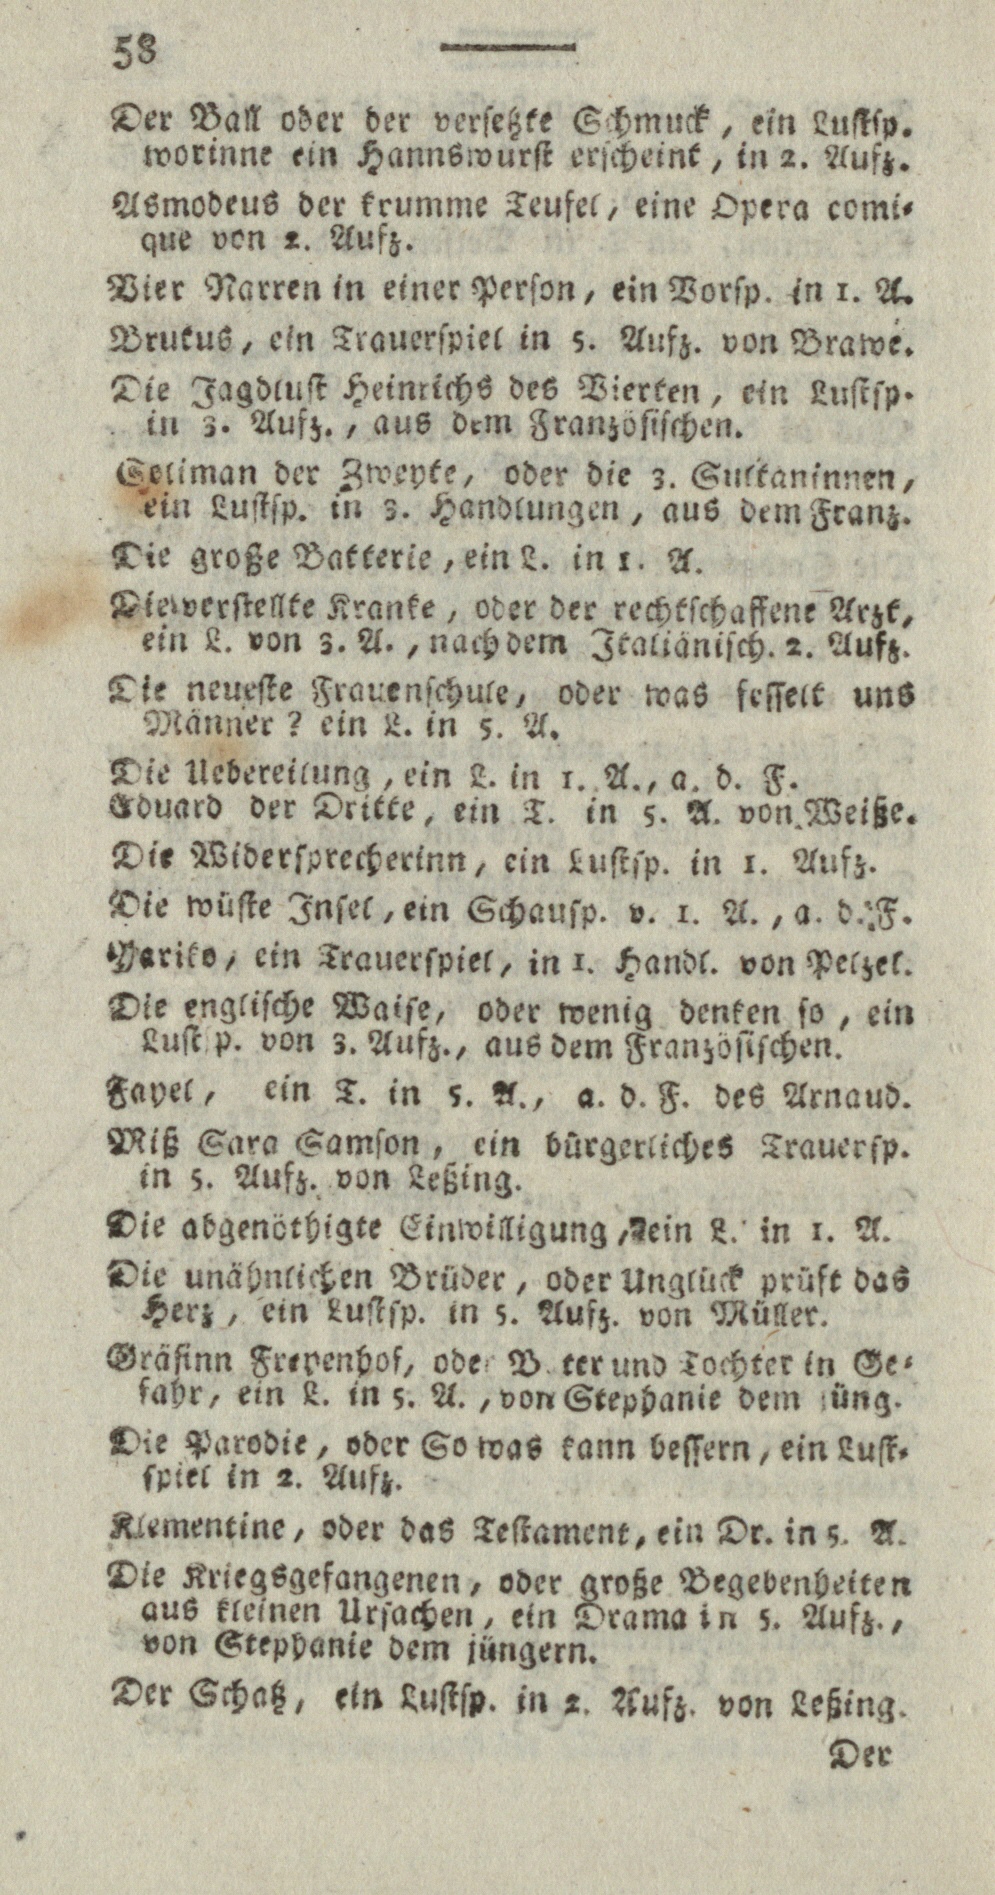 58
Der Ball oder der versetzte Schmuck, ein Lustsp.
worinne ein Hannswurst erscheint, in 2. Aufz.
Asmodeus der krumme Teufel, eine Opera comi-
que von 2. Aufz.
Vier Narren in einer Person, ein Vorsp. in 1. A.
Brutus, ein Trauerspiel in 5. Aufz. von Brawe.
Die Jagdlust Heinrichs des Vierten, ein Lustsp.
in 3. Aufz., aus dem Französischen.
Soliman der Zweyte, oder die 3. Sultaninnen,
ein Lustsp. in 3. Handlungen, aus dem Franz.
Die große Batterie, ein L. in 1. A.
Die verstellte Kranke, oder der rechtschaffene Arzt,
ein L. von 3. A., nach dem Italiänisch. 2. Aufz.
Die neueste Frauenschule, oder was fesselt uns
Männer? ein L. in 5. A.
Die Uebereilung, ein L. in 1. A., a. d. F.
Eduard der Dritte, ein T. in 5. A. von Weiße.
Die Widersprecherinn, ein Lustsp. in 1. Aufz.
Die wüste Insel, ein Schausp. v. 1. A., a. d. F.
Yariko, ein Trauerspiel, in 1. Handl. von Pelzel.
Die englische Waise, oder wenig denken so, ein
Lust p. von 3. Aufz., aus dem Französischen.
Fayel, ein T. in 5. A., a. d. F. des Arnaud.
Miß Sara Samson, ein bürgerliches Trauersp.
in 5. Aufz. von Leßing.
Die abgenöthigte Einwilligung, ein L. in 1. A.
Die unähnlichen Brüder, oder Unglück prüft das
Herz, ein Lustsp. in 5. Aufz. von Müller.
Gräfinn Freyenhof, ode V ter und Tochter in Ge-
fahr, ein L. in 5. A., von Stephanie dem jüng.
Die Parodie, oder So was kann bessern, ein Lust-
spiel in 2. Aufz.
Klementine, oder das Testament, ein Dr. in 5. A.
Die Kriegsgefangenen, oder große Begebenheiten
aus kleinen Ursachen, ein Drama in 5. Aufz.,
von Stephanie dem jüngern.
Der Schatz, ein Lustsp. in 2. Aufz. von Leßing.
Der